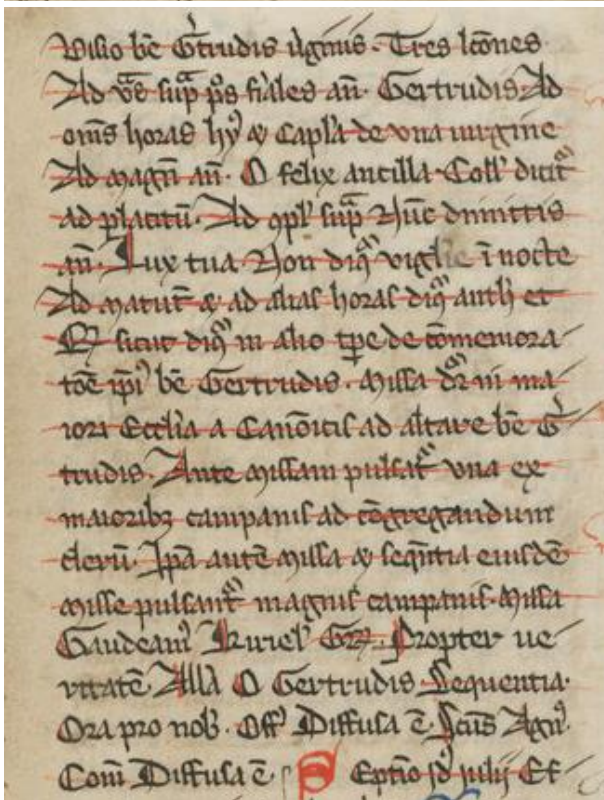 Visio bē Gͥtrudis v̇ginis. Tres lcōnes
Ad vs̄ē sup̄ p̄s fr̄iales an̄. Gertrudis. Ad
om̄s horas hy᷒ ⁊ capl'a de vna uirgine
Ad magn̄ an̄. O felix ancilla. Coll' dicit᷑
ad placitū. Ad ꝯpl' sup̄ Nūc dimittis
an̄. Lux tua. Non dn̄r vigilie ī nocte
Ad matut̄ ⁊ ad alias horas dn̄r anth' et
sicut dn̄r in alio tp̄e de cōmemora
tōe ip̄i᷒ bē Gertrudis. Missa dr̄ in ma
iori Eccl'ia a Canōicis ad altare bē Gͥ
trudis. Ante missam pulsat᷑ vna ex
maioribꝫ campanis ad cōgregandum
clerū. Ip̄a autē missa ⁊ seqn̄tia eiusdē
misse pulsant᷑ magnis campanis. Missa
Gaudeam᷒ Kyriel' Gꝝ. Propter ue
ritatē. All'a O Gertrudis Sequentia.
Ora pro nob'. Off' Diffusa ē. Sc̄us Agn᷒.
Com̄ Diffusa ē. Septīo id' iulij Ef